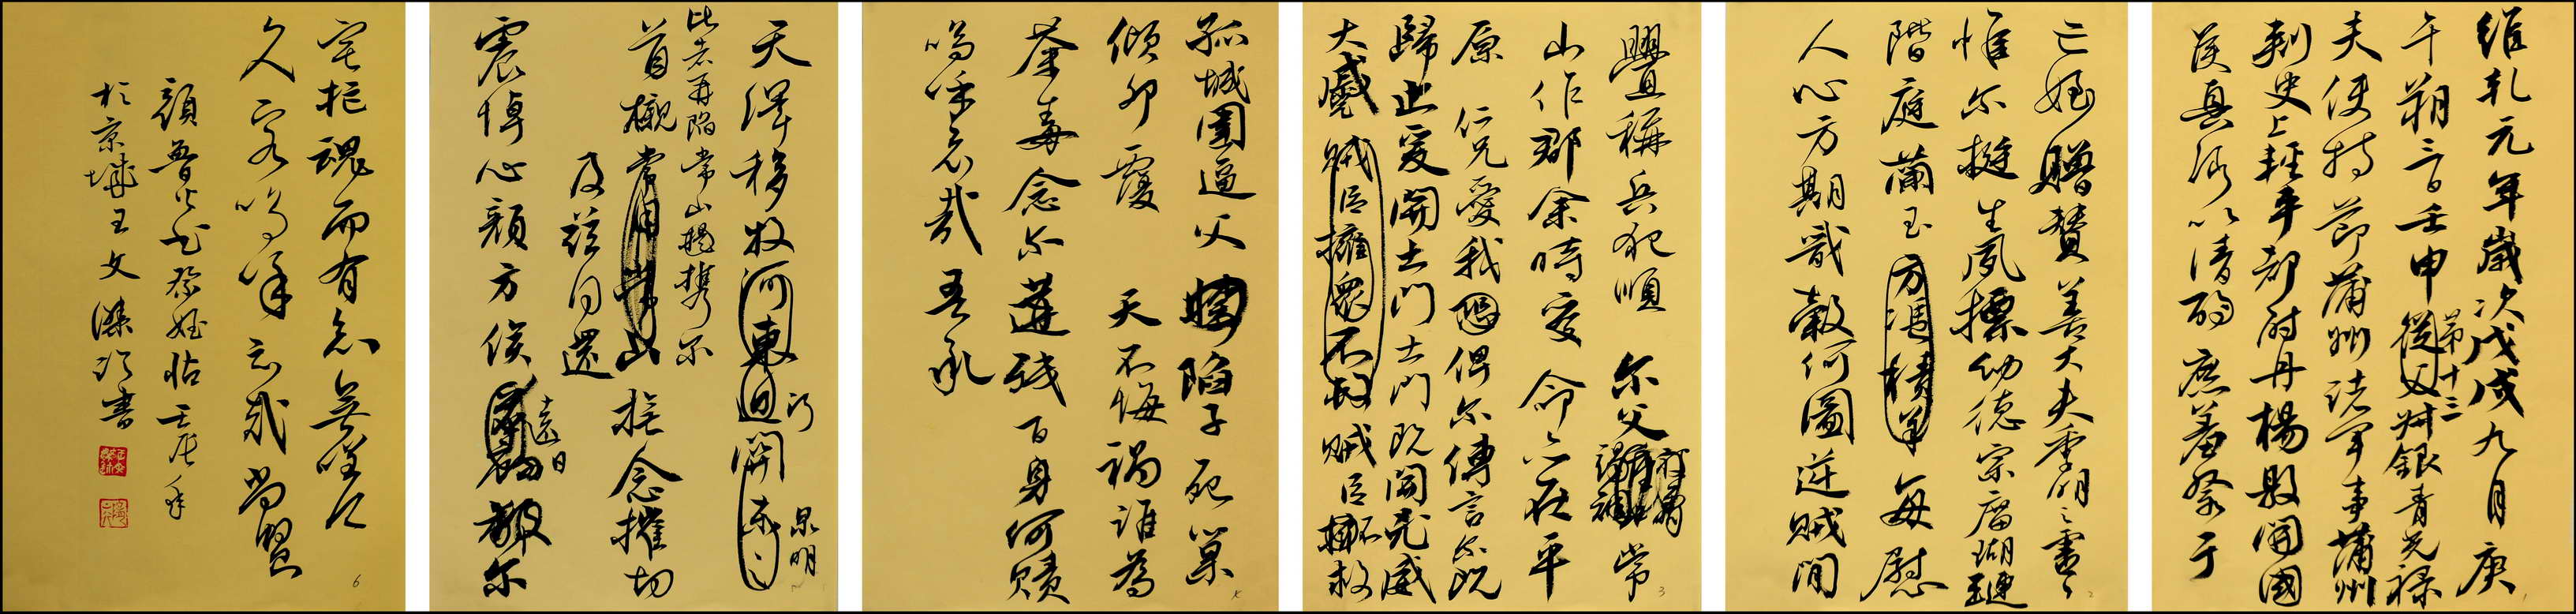 維乾元年歲次戊戌九月庚
午朔三日壬申從父第十三叔銀青光祿
夫使持節蒲州諸軍事蒲州
刺史上輕車都尉丹楊縣開國
侯真卿以清酌庶羞祭于
亡姪贈贊善大夫季明之靈
惟爾挺生夙標幼德宗廟瑚璉
階庭蘭玉方馮積善每慰
人心方期戩穀何圖逆賊間
釁稱兵犯順爾父常
山作郡余時受命亦在平
原仁兄愛我恐俾爾傳言爾既
歸止爰開土門土門既開兇威
大蹙賊臣擁眾不救賊臣不救
孤城圍逼父陷子死巢
傾卵覆天不悔禍誰為
荼毒念爾遘殘百身何贖
嗚呼哀哉吾承
天澤移牧河東近河關泉明
比者再陷常山攜爾
首櫬及茲同還撫念摧切
震悼心顏方俟遠日爾
宅兆魂而有知無嗟
久客嗚呼哀哉尚饗
顏魯公祭姪帖壬辰年
於京城王文